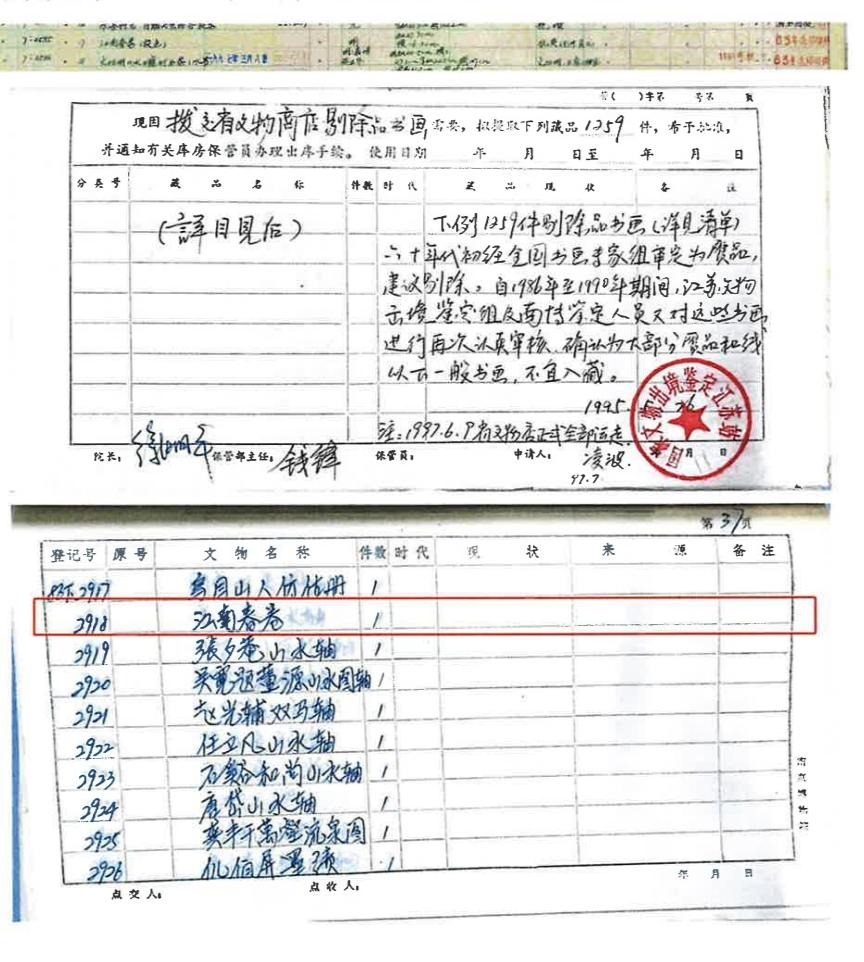 江南春卷(设色)
一九六七年三月八日
第( )字第 号第 页
现因 拨交省文物商店剔除品书画 需要，拟提取下列藏品 1259 件，希予批准，
并通知有关库房保管员办理出库手续。 使用日期 年 月 日至 年 月 日
分类号 藏品名称 件数 时代 藏品现状 备注
(詳目見后)
下列1259件剔除品书画(详见清单)
六十年代初经全国书画专家组审定为赝品,
建议剔除。自1986年至1990年期间,江苏文物
出境鉴定组及南博鉴定人员又对这些书画
进行再次认真审核,确认为大部分赝品和线
以下一般书画,不宜入藏。
1995
注:1997.6.9省文物店正式全部运走
国家文物出境鉴定江苏站
院长： 徐湖平 保管部主任： 钱锋 保管员： 申请人： 凌波 年 月 日
97.7.
第37页
登记号 原号 文物名称 件数 时代 现状 来源 备注
2917 烏目山人仿古册 1
2918 江南春卷 1
2919 張夕菴山水轴 1
2920 吴寬题董源山水图轴 1
2921 赵光辅双马轴 1
2922 任立凡山水轴 1
2923 石谿和尚山水轴 1
2924 唐岱山水轴 1
2925 龚半千萬壑流泉图 1
2926 1
点交人： 点收人： 年 月 日